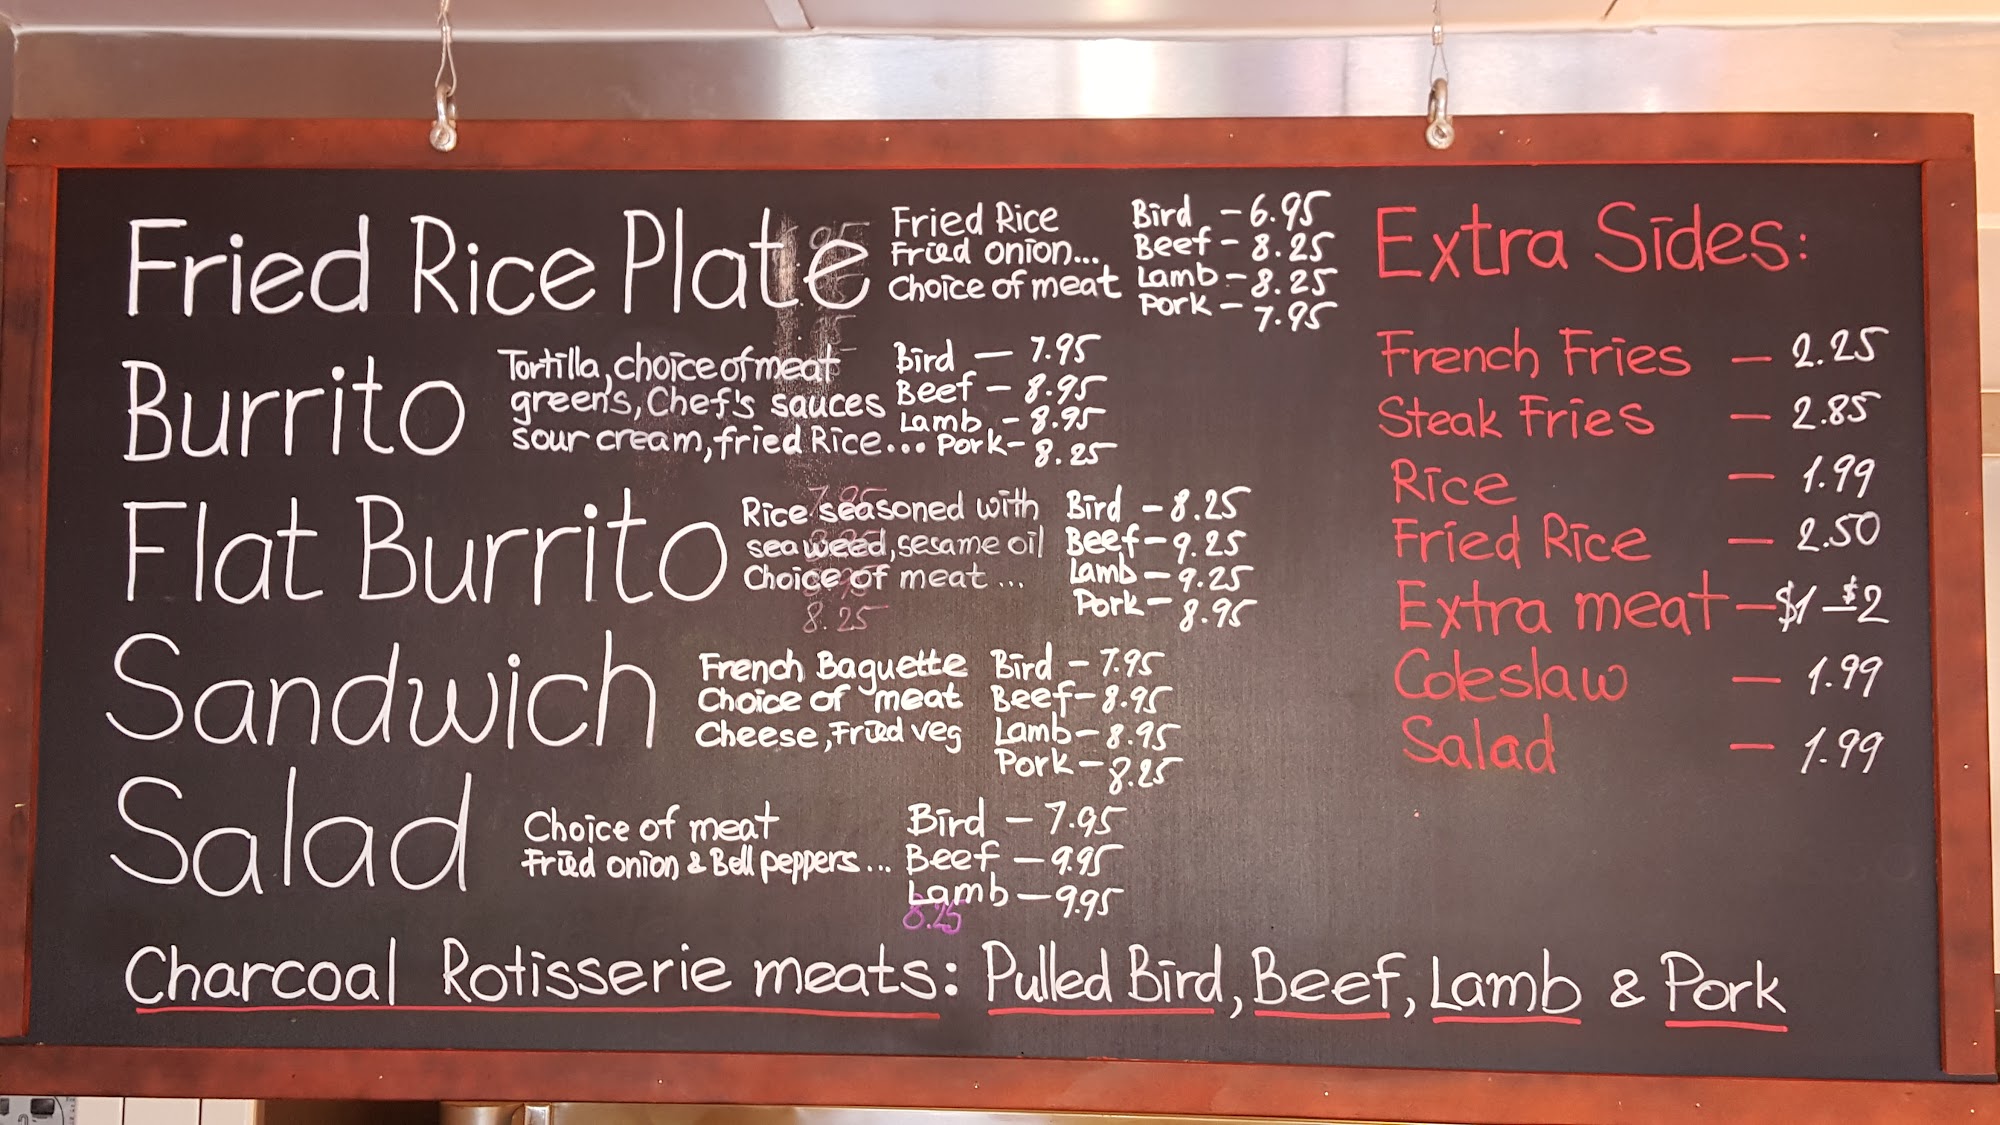 Fried Rice Plate
Fried Rice
Fried onion...
Choice of meat
Bird - 6.95
Beef - 8.25
Lamb - 8.25
Pork - 7.95
Burrito
Tortilla, choice of meat
greens, Chef's sauces
sour cream, fried Rice...
Bird - 7.95
Beef - 8.95
Lamb - 8.95
Pork - 8.25
Flat Burrito
Rice seasoned with
seaweed, sesame oil
Choice of meat ...
8.25
Bird - 8.25
Beef - 9.25
Lamb - 9.25
Pork - 8.95
Sandwich
French Baguette
Choice of meat
Cheese, Fried veg
Bird - 7.95
Beef - 8.95
Lamb - 8.95
Pork - 8.25
Salad
Choice of meat
Fried onion & Bell peppers...
Bird - 7.95
Beef - 9.95
Lamb - 9.95
8.25
Charcoal Rotisserie meats: Pulled Bird, Beef, Lamb & Pork
Extra Sides:
French Fries - 2.25
Steak Fries - 2.85
Rice - 1.99
Fried Rice - 2.50
Extra meat - $1 - $2
Coleslaw - 1.99
Salad - 1.99